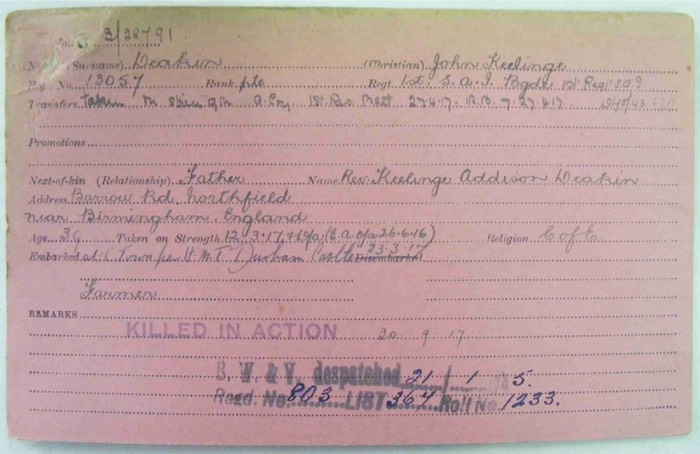 No. 3/28791
Name (Surname) Deakin (Christian) John Keelinge
Regt. No. 13057 Rank pte Regt. 1st. S.A.I. Bgde 1st Regt SAI
Transfers taken on A Coy 1st Res. Batt 27.4.17
Promotions
Next-of-kin (Relationship) Father Name Rev. Keelinge Addison Deakin
Address Barrow Rd, Northfield
near Birmingham. England
Age 39 Taken on Strength 12.3.17 Religion C of E
Embarked at C. Town per H.M.T. Durham Castle Disembarked 23.3.17
Farmer
REMARKS
KILLED IN ACTION 20.9.17
B. W. & V. despatched 21/1/ 5.
Regd. No. 803 LIST 364 Roll No 1233.